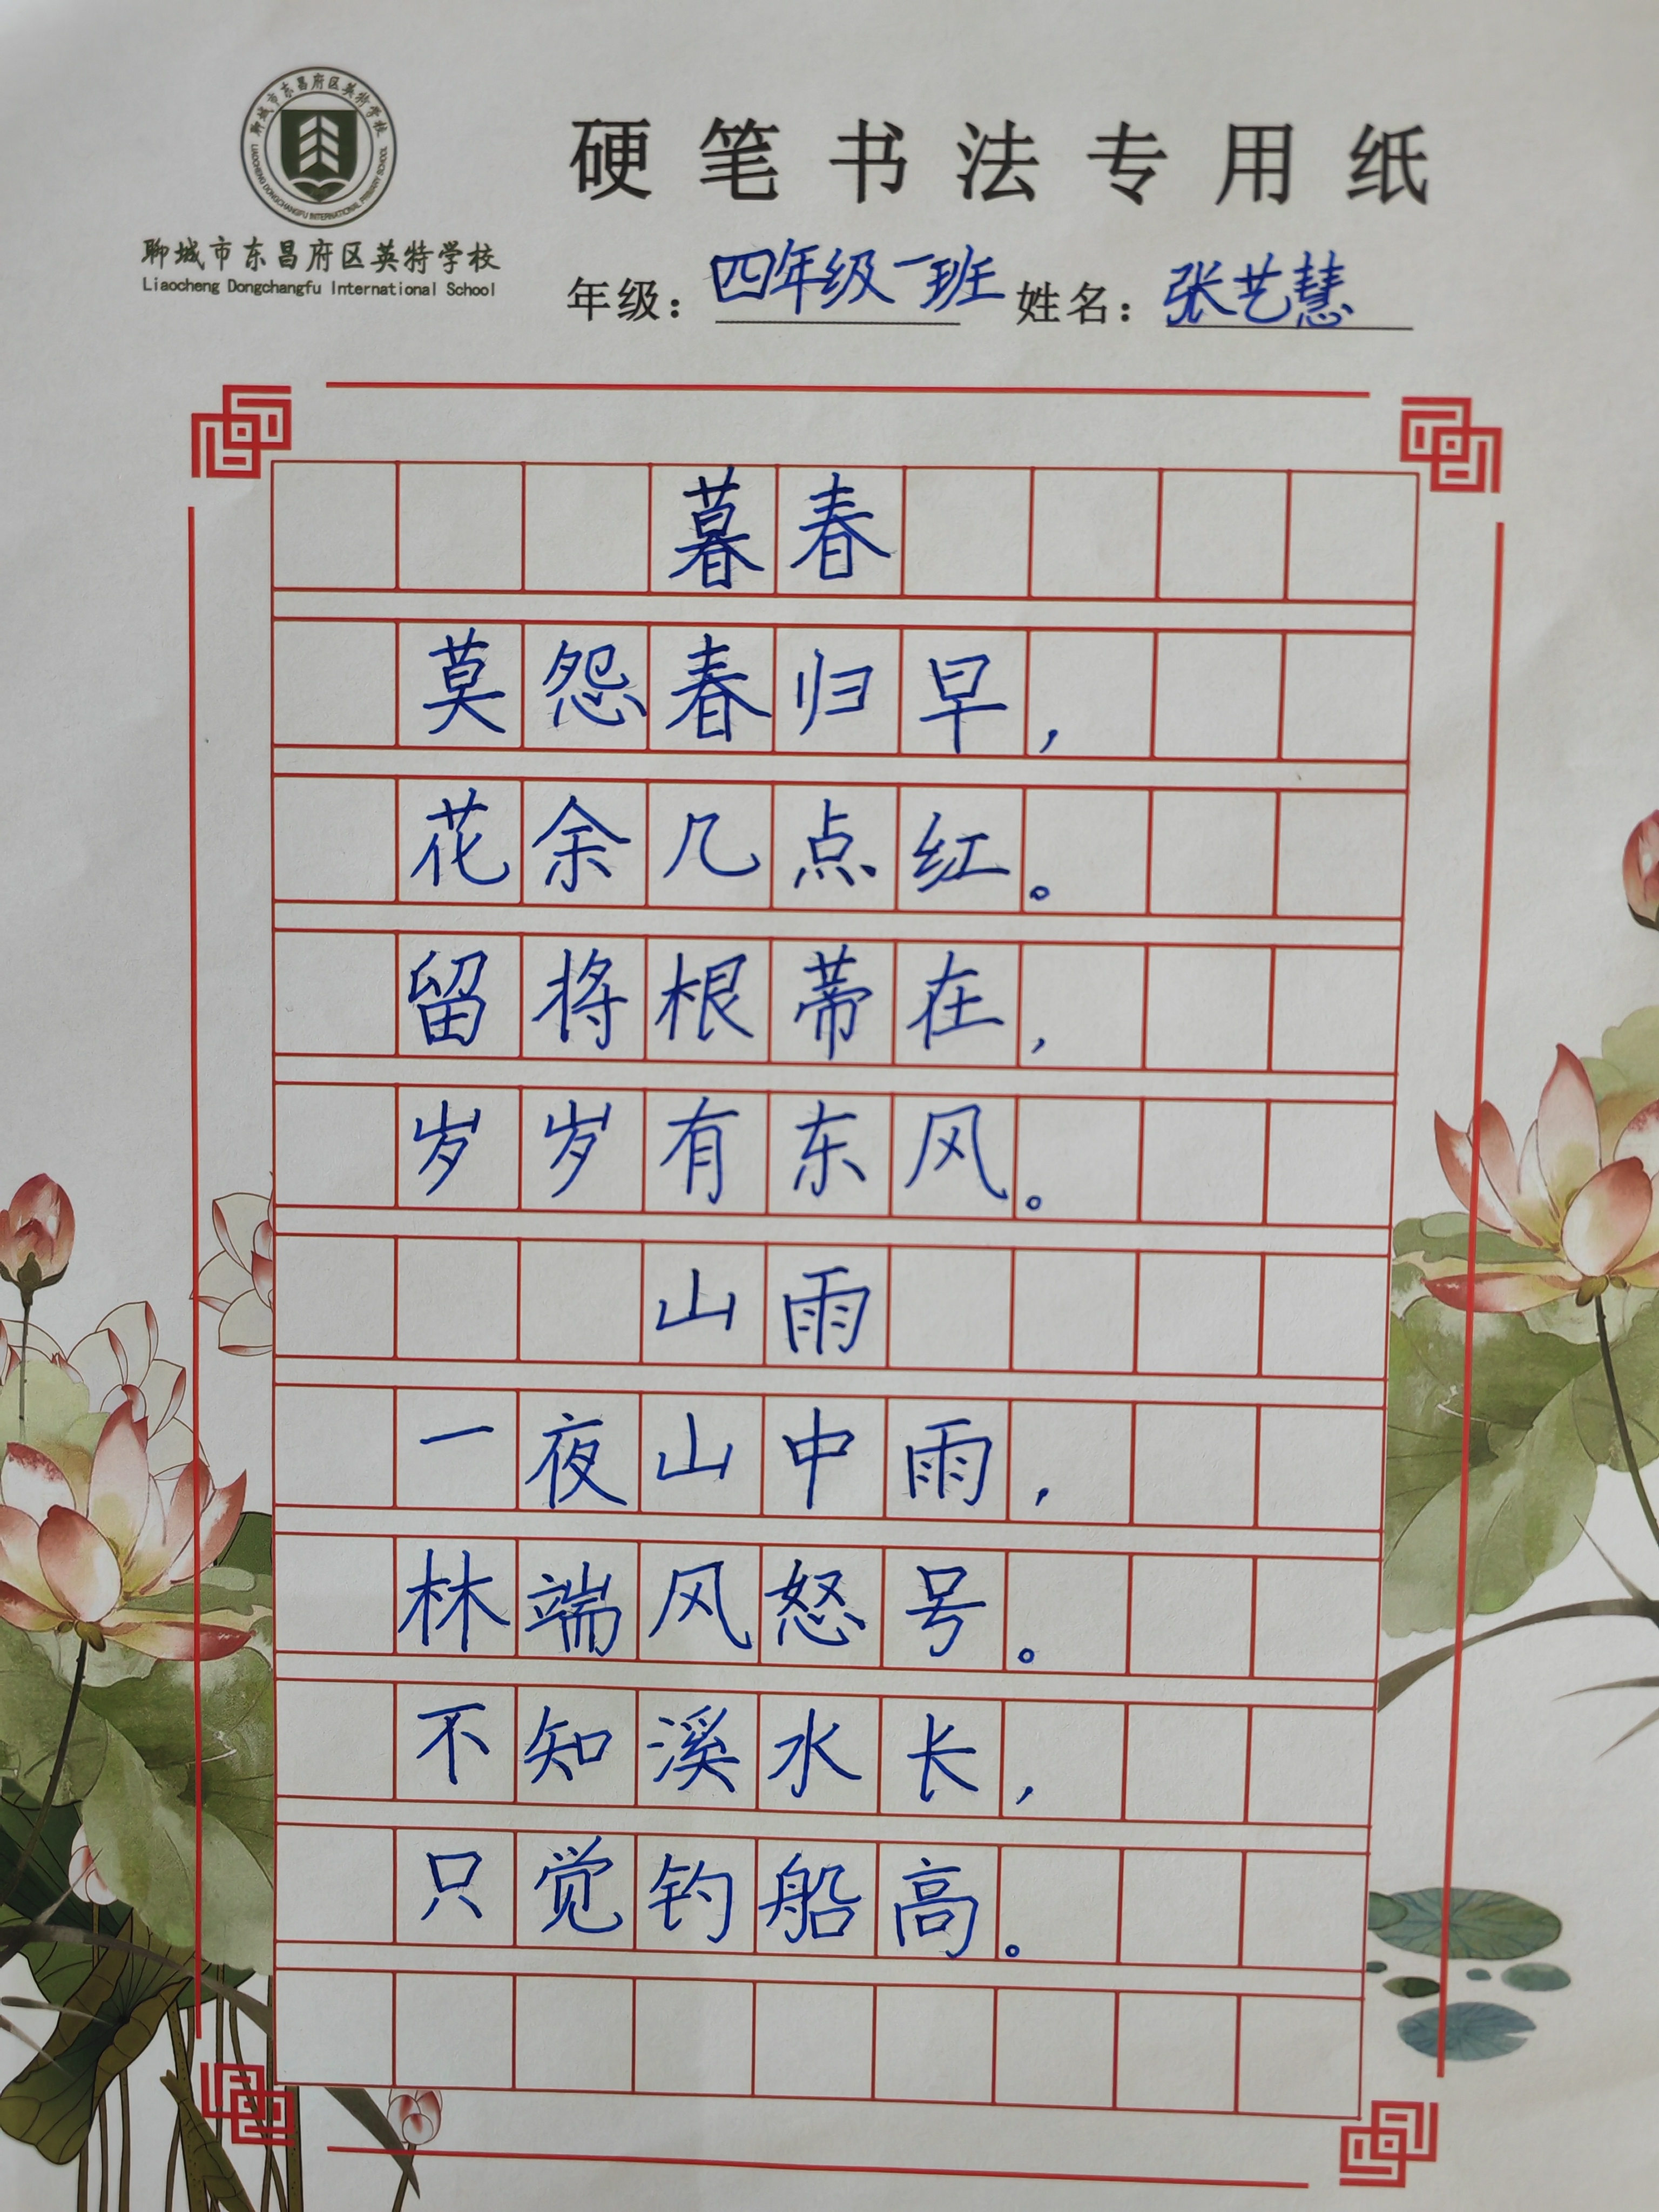 聊城市东昌府区英特学校
LIAOCHENG DONGCHANGFU INTERNATIONAL PRIMARY SCHOOL
聊城市东昌府区英特学校
Liaocheng Dongchangfu International School
硬笔书法专用纸
年级：四年级一班 姓名：张艺慧
暮春
莫怨春归早，
花余几点红。
留将根蒂在，
岁岁有东风。
山雨
一夜山中雨，
林端风怒号。
不知溪水长，
只觉钓船高。